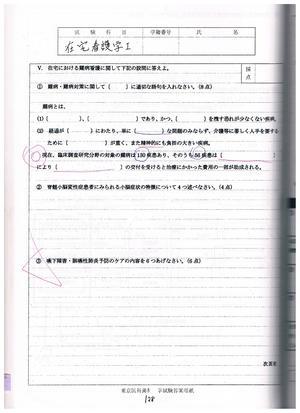 試験科目
学籍番号
氏名
在宅看護学I
V. 在宅における難病看護に関して下記の設問に答えよ。
採点
① 難病・難病対策に関して（　　）に適切な語句を入れなさい。（8点）
難病とは、
(1)（　　　　）、（　　　　　　）であり、かつ、（　　　　）を残す恐れが少なくない疾病。
(2) 経過が（　　　　）にわたり、単に（　　　　）な問題のみならず、介護等に著しく人手を要する
ために（　　　　）が重く、また精神的にも負担の大きい疾病。
現在、臨床調査研究分野の対象の難病は130疾患あり、そのうち56疾患は（　　　　　　）
により（　　　　　　）の交付を受けると治療にかかった費用の一部が助成される。
② 脊髄小脳変性症患者にみられる小脳症状の特徴について4つ述べなさい。（4点）
③ 嚥下障害・誤嚥性肺炎予防のケアの内容を6つあげなさい。（6点）
128